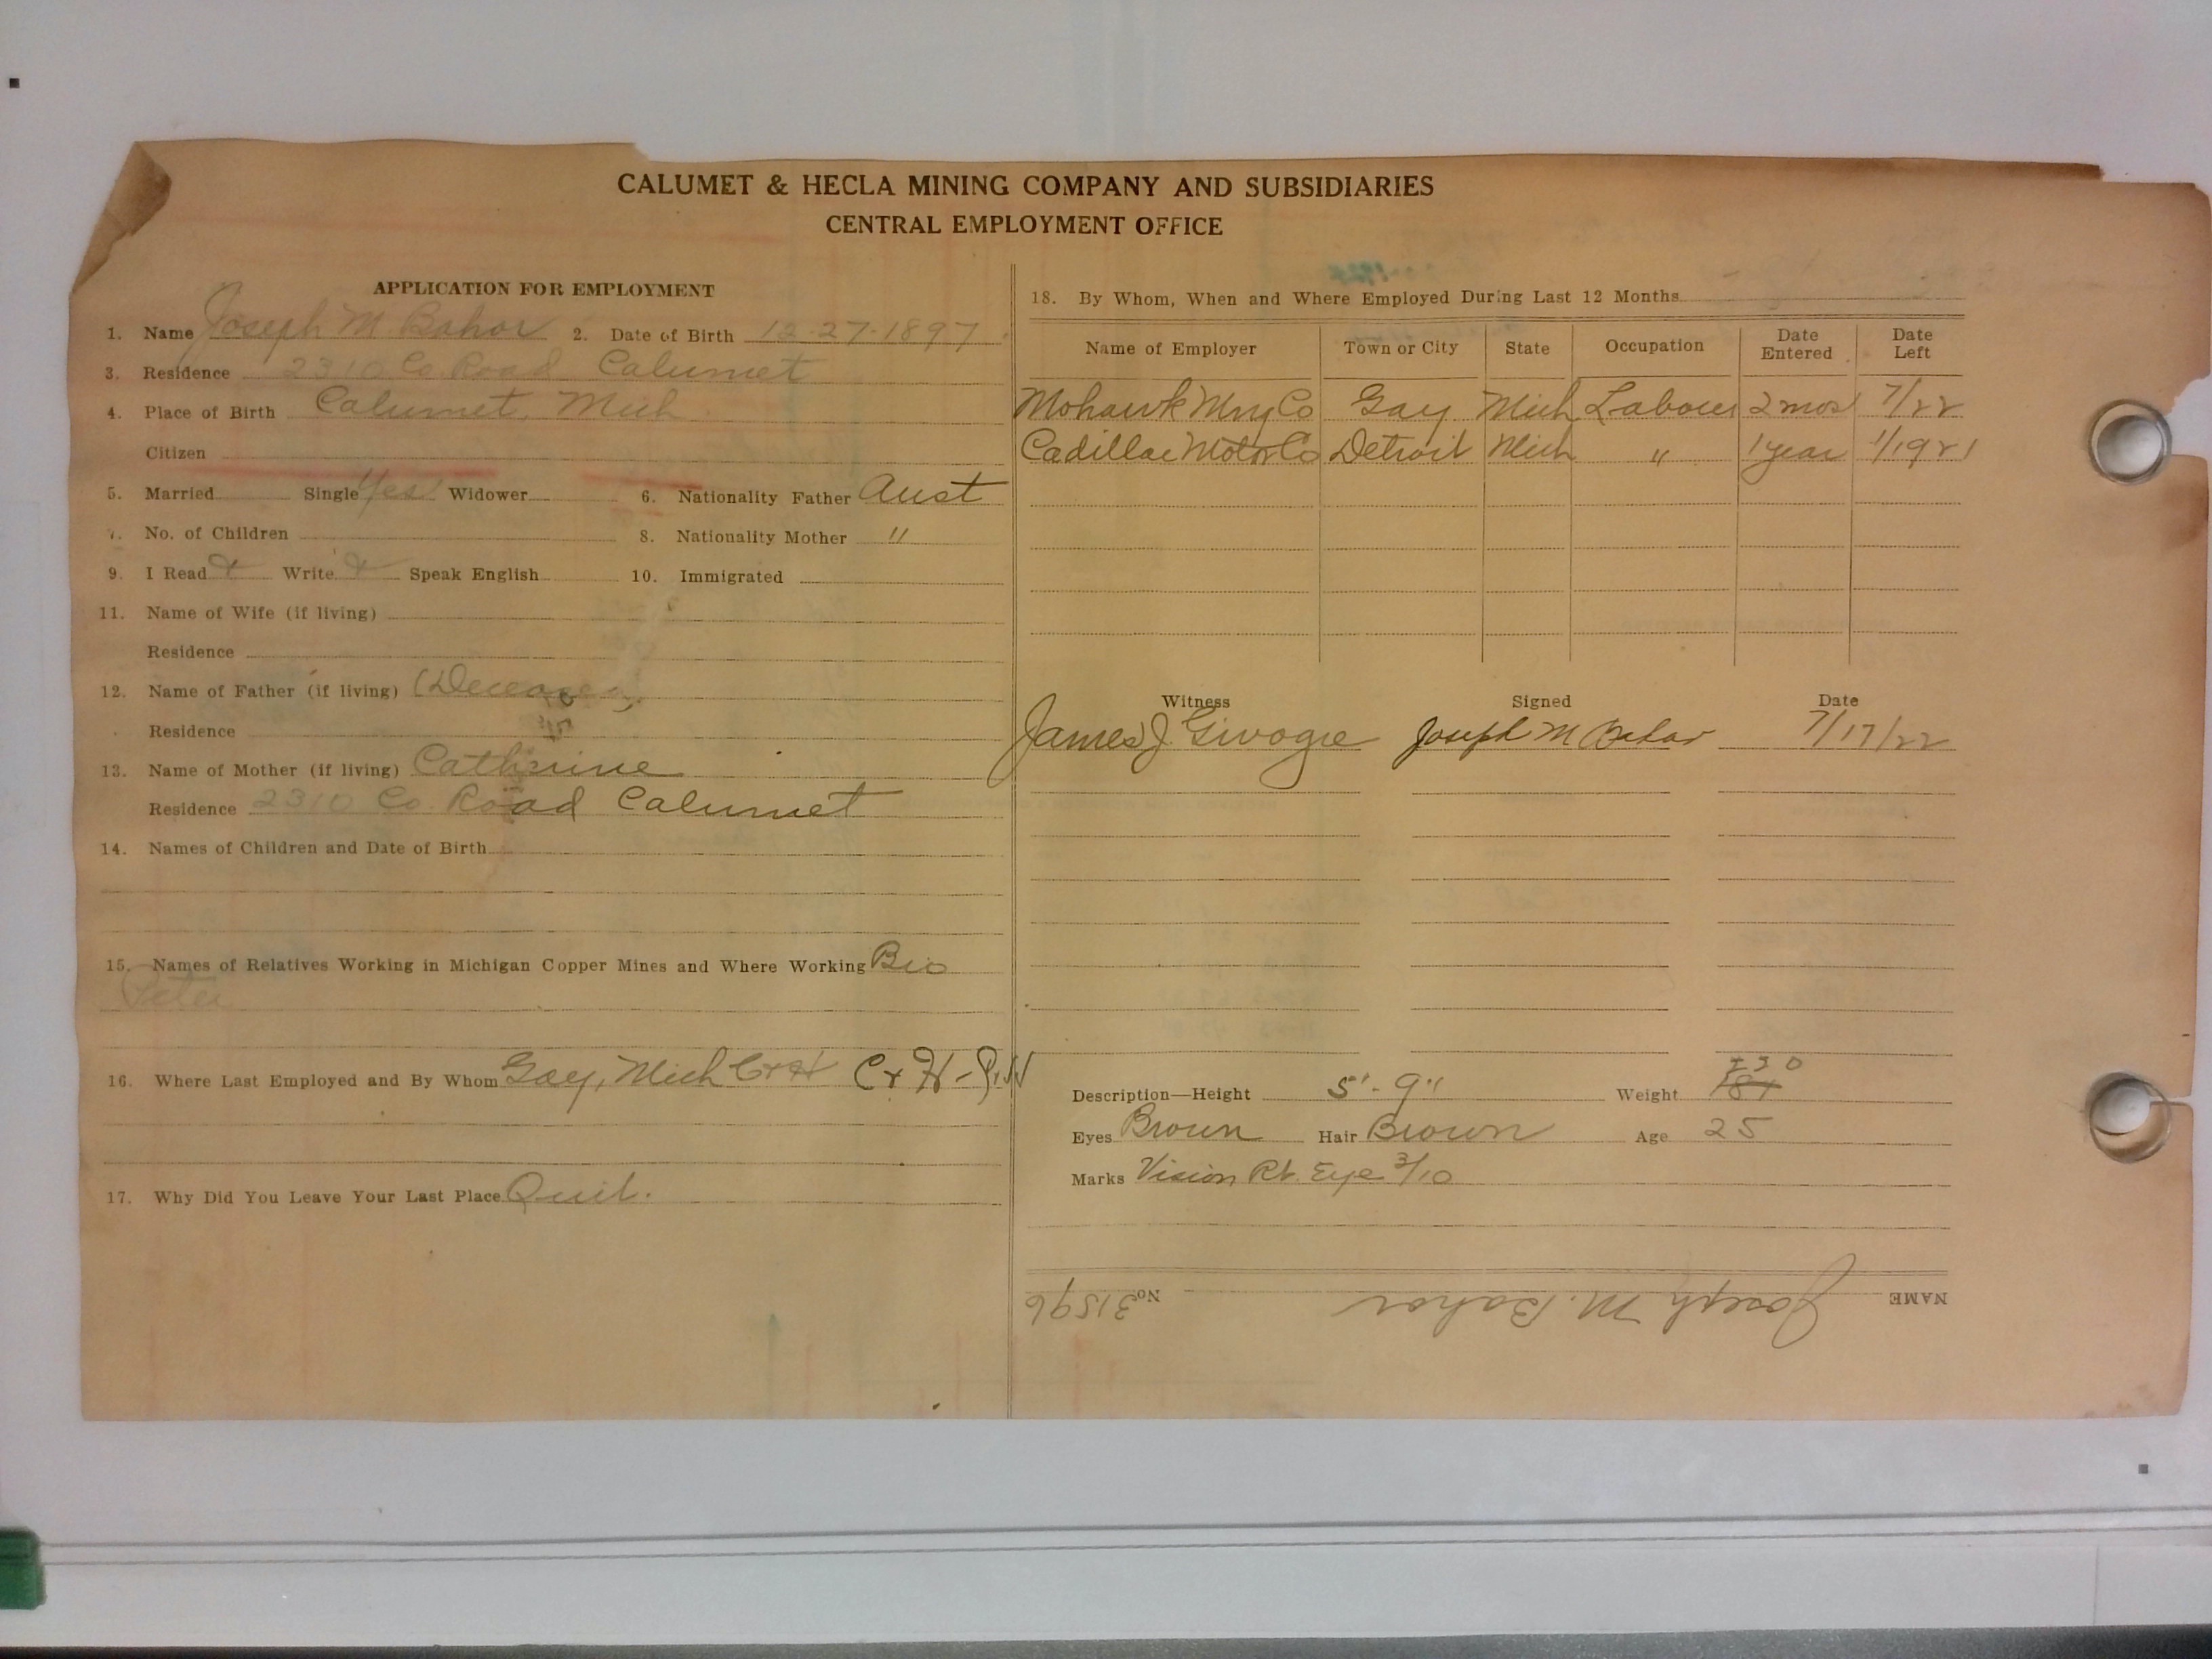 CALUMET & HECLA MINING COMPANY AND SUBSIDIARIES
CENTRAL EMPLOYMENT OFFICE
APPLICATION FOR EMPLOYMENT
1. Name Joseph M Bahor 2. Date of Birth 12-27-1897
3. Residence 2310 Co. Road Calumet
4. Place of Birth Calumet, Mich
Citizen
5. Married Single Yes Widower 6. Nationality Father Aust
7. No. of Children 8. Nationality Mother "
9. I Read Write Speak English 10. Immigrated
11. Name of Wife (if living)
Residence
12. Name of Father (if living) (Deceased)
Residence
13. Name of Mother (if living) Cathrine
Residence 2310 Co. Road Calumet
14. Names of Children and Date of Birth
15. Names of Relatives Working in Michigan Copper Mines and Where Working Bro
Peter
16. Where Last Employed and By Whom Gay, Mich C+H C+H-
17. Why Did You Leave Your Last Place Quit.
18. By Whom, When and Where Employed During Last 12 Months
Name of Employer Town or City State Occupation Date Entered Date Left
Mohawk Mng Co Gay Mich Laborer 2 mos 7/22
Cadillac Motor Co Detroit Mich " 1 year 1/1921
Witness Signed Date
James J. Joseph M Bahor 7/17/22
Description—Height 5'-9" Weight 181 230
Eyes Brown Hair Brown Age 25
Marks Vision Rt. Eye 3/10
NAME Joseph M. Bahor No. 31596